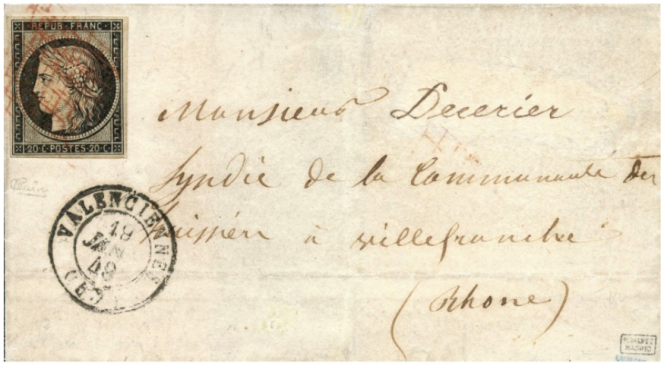 REPUB. FRANC.
20 C. POSTES 20 C.
Monsieur Decerier
Syndic de la Communauté des
huissiers à Villefranche
(Rhone)
VALENCIENNES
19
JANV
49